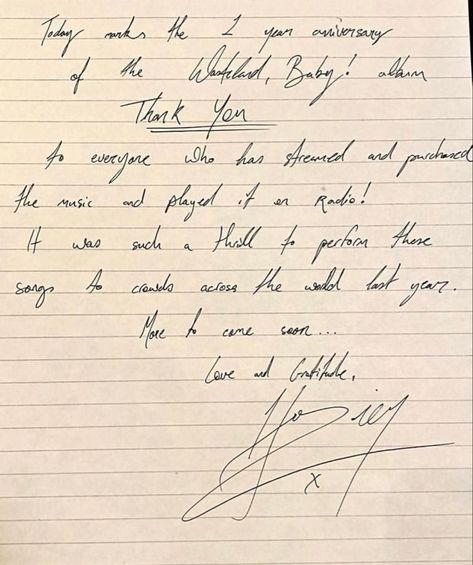 Today marks the 1 year aniversary
of the Wasteland, Baby! album
Thank You
to everyone who has streamed and purchased
the music and played it on Radio!
It was such a thrill to perform these
songs to crowds across the world last year.
More to come soon...
Love and Gratitude,
Hozier
x